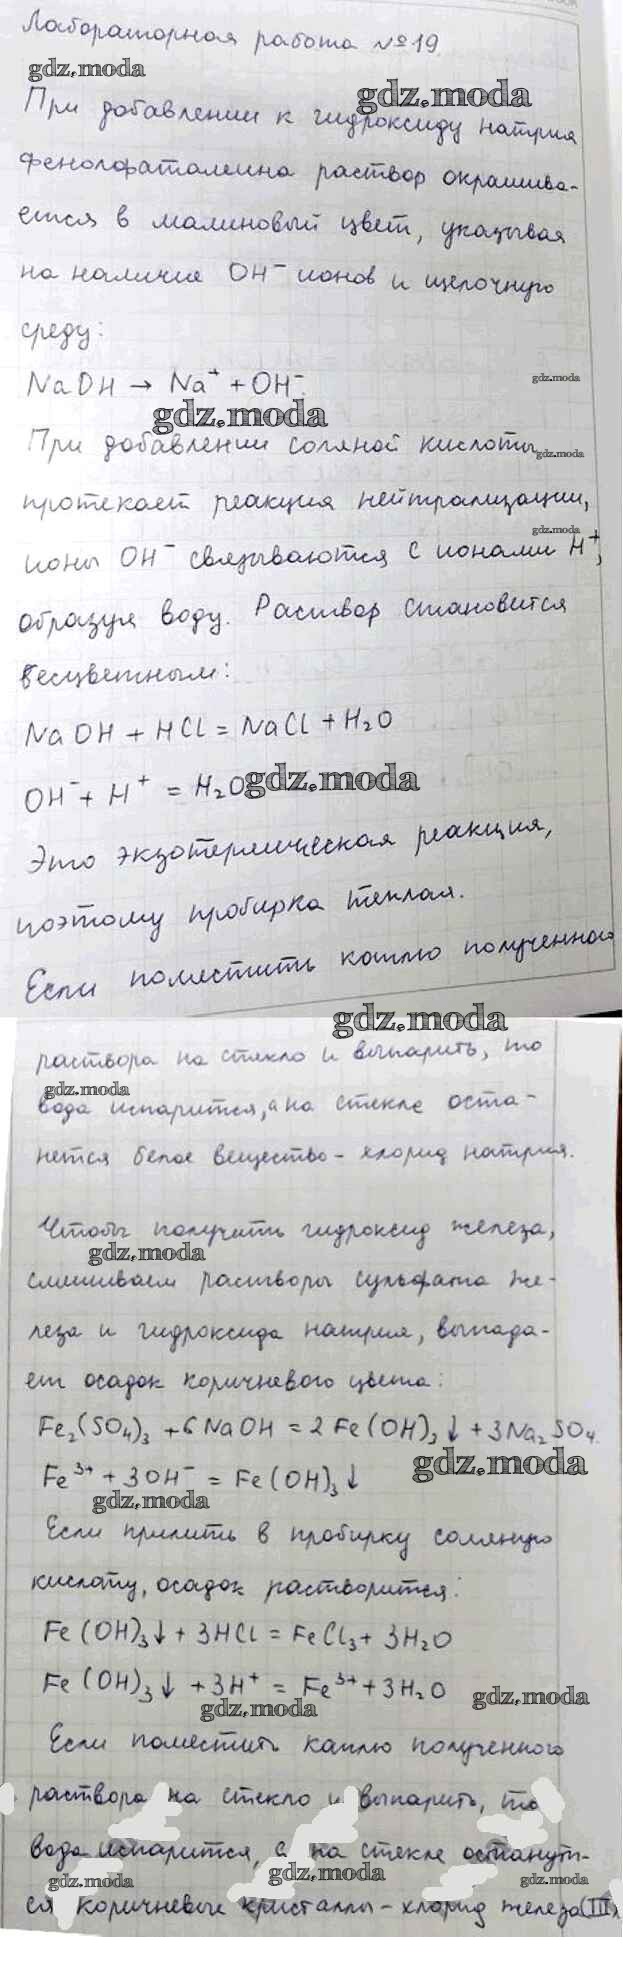 Лабораторная работа №19.
gdz.moda
gdz.moda
При добавлении к гидроксиду натрия
фенолфталеина раствор окрашива-
ется в малиновый цвет, указывая
на наличие OH⁻ ионов и щелочную
среду:
NaOH → Na⁺ + OH⁻.
gdz.moda
gdz.moda
При добавлении соляной кислоты
gdz.moda
протекает реакция нейтрализации,
gdz.moda
ионы OH⁻ связываются с ионами H⁺,
образуя воду. Раствор становится
бесцветным:
NaOH + HCl = NaCl + H₂O
OH⁻ + H⁺ = H₂O
gdz.moda
Это экзотермическая реакция,
поэтому пробирка теплая.
Если поместить каплю полученного
gdz.moda
раствора на стекло и выпарить, то
gdz.moda
вода испарится, а на стекле оста-
нется белое вещество - хлорид натрия.
Чтобы получить гидроксид железа,
gdz.moda
смешиваем растворы сульфата же-
леза и гидроксида натрия, выпада-
ет осадок коричневого цвета:
Fe₂(SO₄)₃ + 6NaOH = 2Fe(OH)₃↓ + 3Na₂SO₄.
gdz.moda
Fe³⁺ + 3OH⁻ = Fe(OH)₃↓
gdz.moda
Если прилить в пробирку соляную
кислоту, осадок растворится:
Fe(OH)₃↓ + 3HCl = FeCl₃ + 3H₂O
Fe(OH)₃↓ + 3H⁺ = Fe³⁺ + 3H₂O
gdz.moda
gdz.moda
Если поместить каплю полученного
раствора на стекло и выпарить, то
вода испарится, а на стекле останут-
gdz.moda
gdz.moda
gdz.moda
ся коричневые кристаллы - хлорид железа (III).